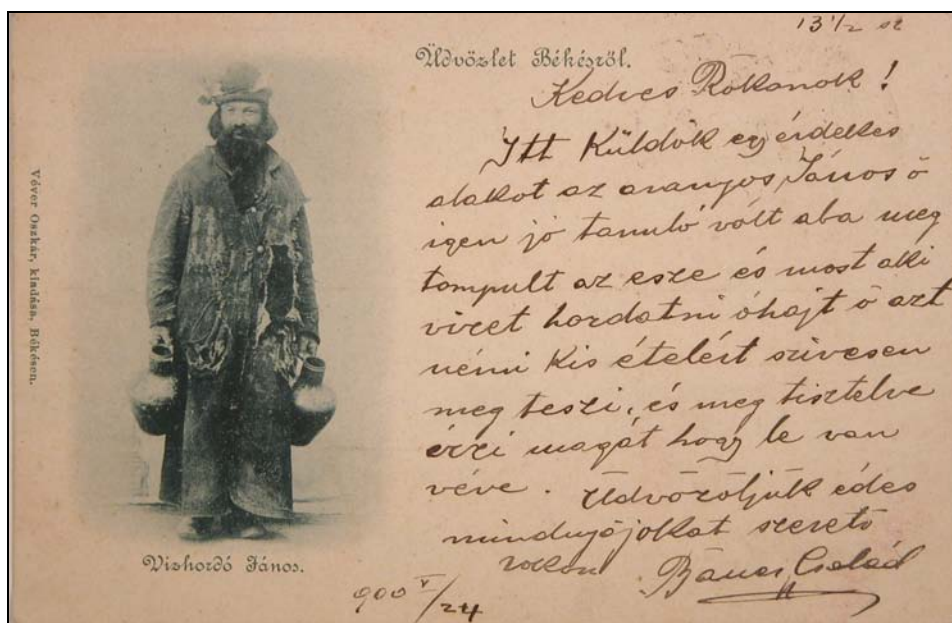 13 1/2 sz
Üdvözlet Békésről.
Kedves Rokonok!
Itt Küldök egy érdekes
alakot az aranyos János ő
igen jó tanuló vólt aba meg
tompult az esze és most aki
vizet hordatni óhajt ő azt
némi kis ételért szivesen
meg teszi, és meg tisztelve
érzi magát hogy le van
véve. Üdvözöljük édes
mindnyájokat szerető
rokon Bauer Család
900 V/24
Vizhordó János.
Véver Oszkár, kiadása, Békésen.